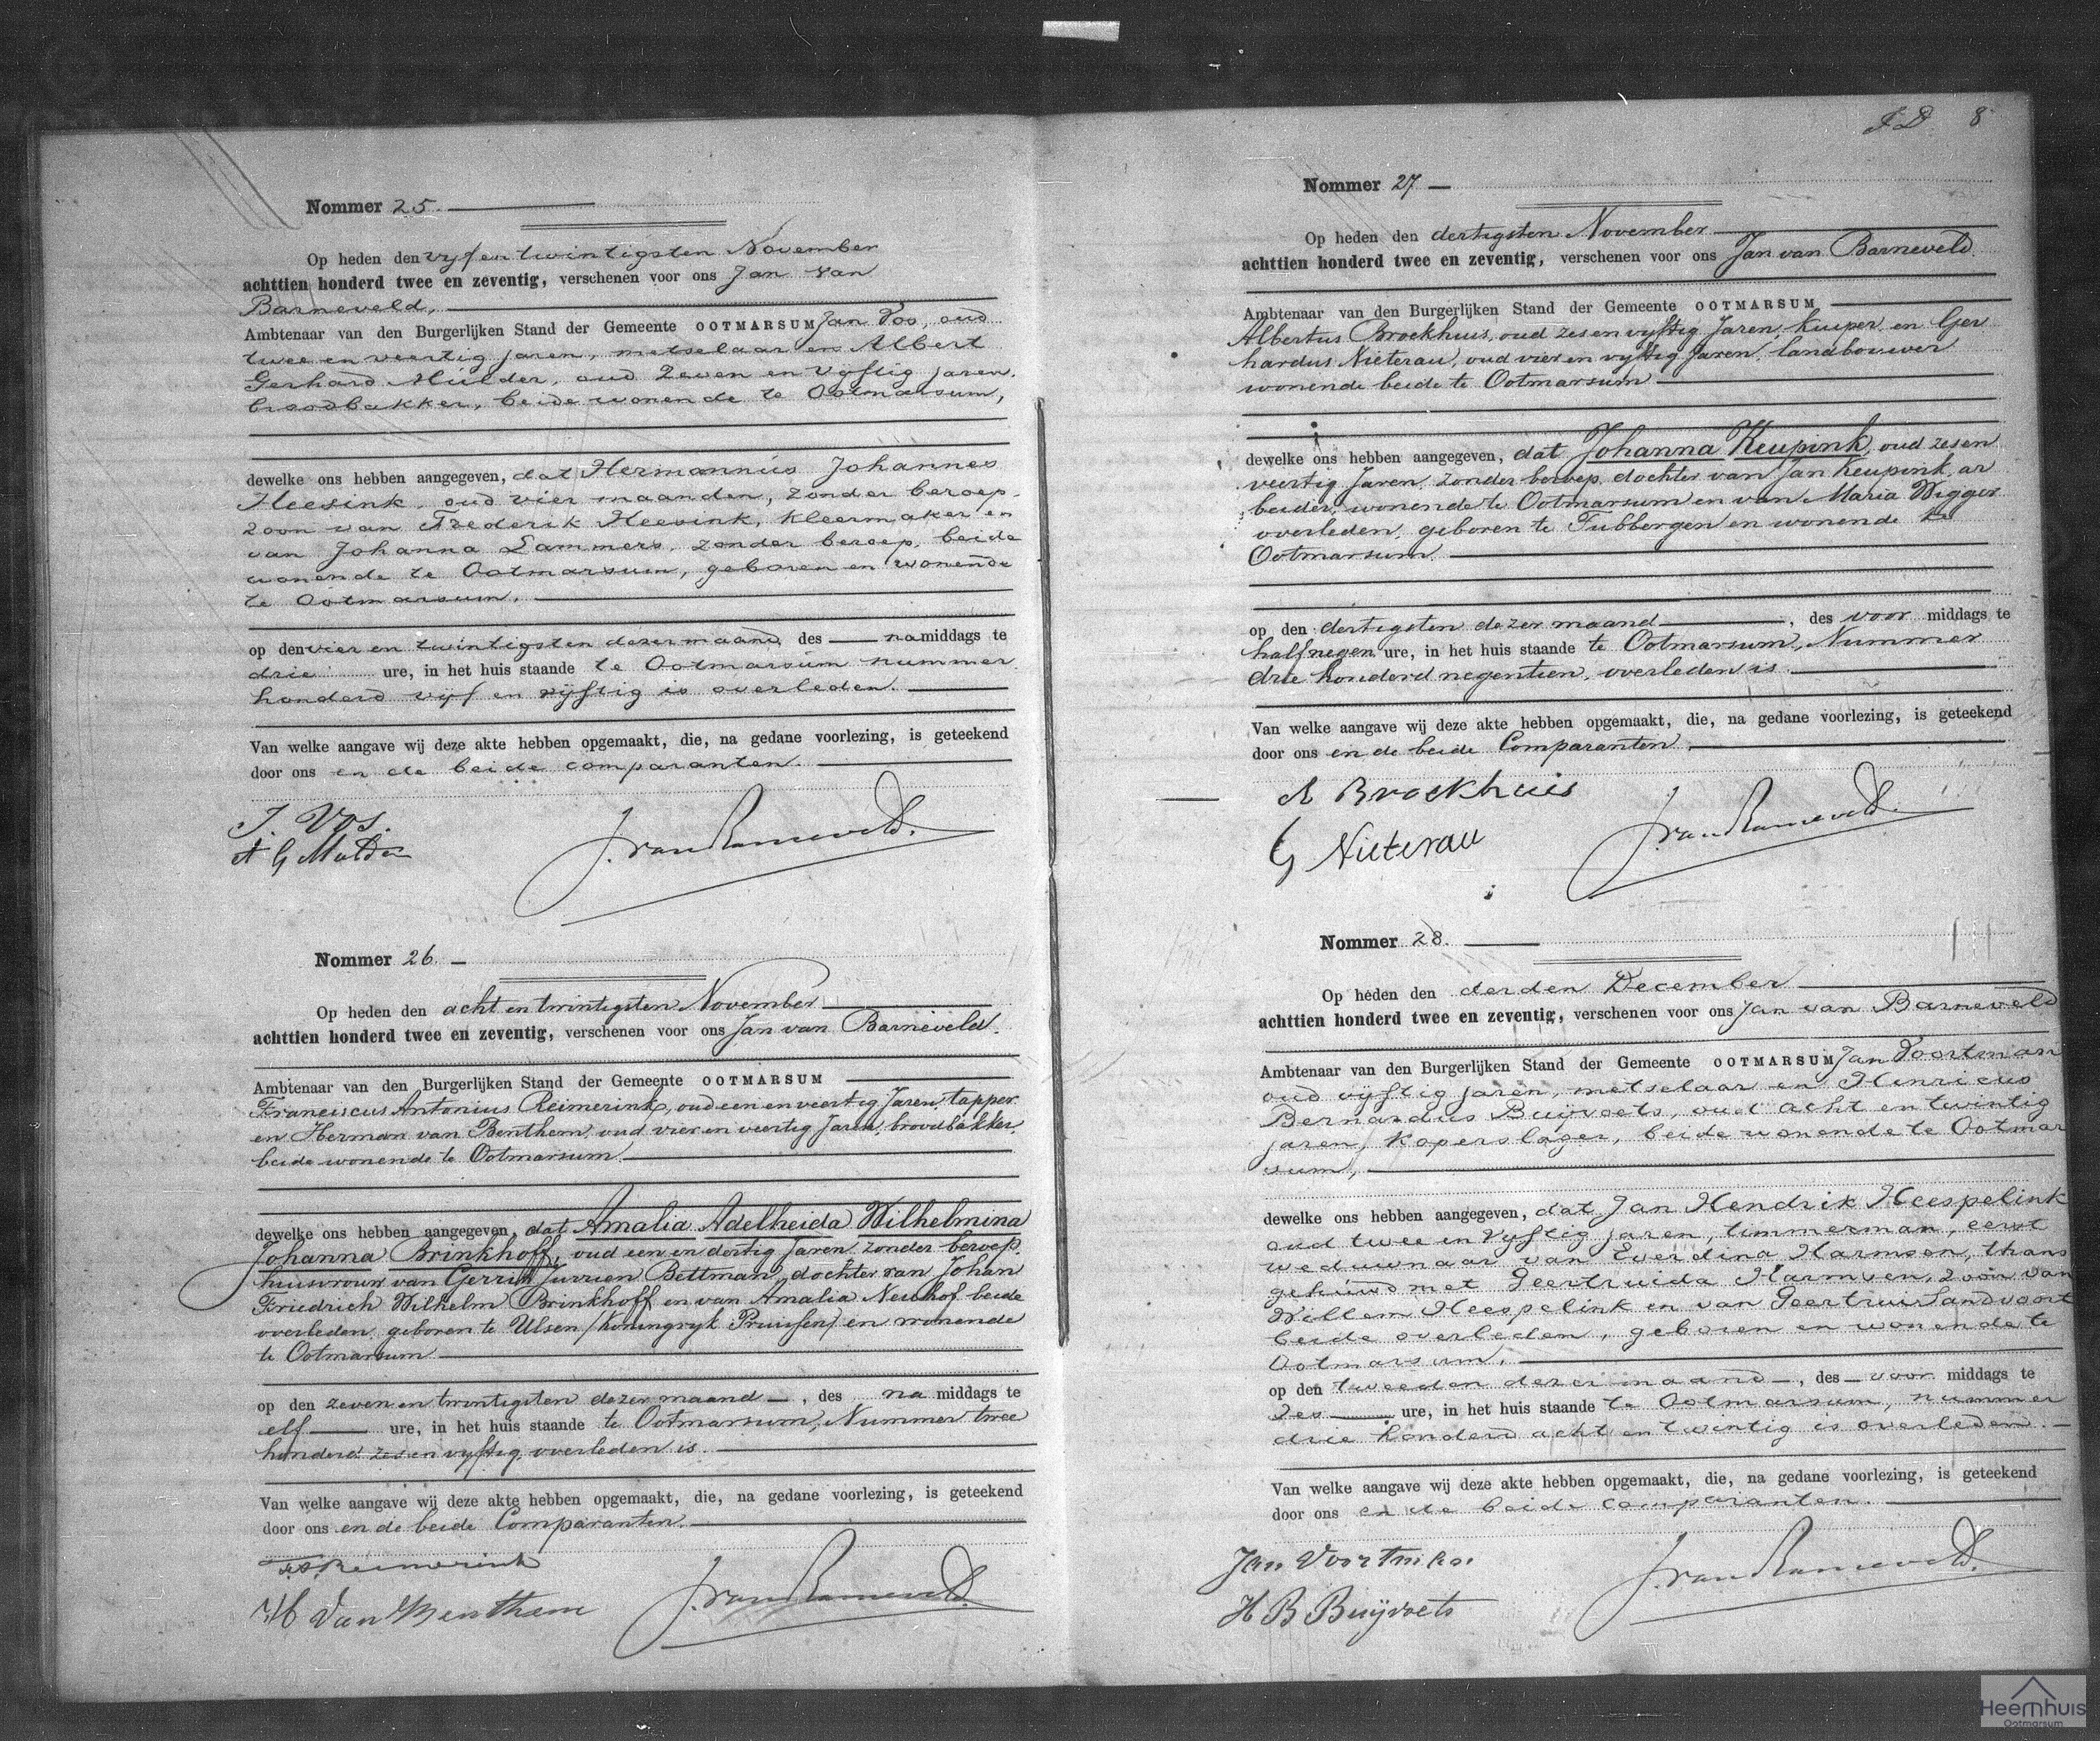 Nommer 25.
Op heden den vyf en twintigsten November
achttien honderd twee en zeventig, verschenen voor ons Jan van
Barneveld,
Ambtenaar van den Burgerlijken Stand der Gemeente OOTMARSUM Jan Vos, oud
twee en veertig jaren, metselaar en Albert
Gerhard Mulder, oud Zeven en Vyftig jaren.
broodbakker, beide wonende te Ootmarsum,
dewelke ons hebben aangegeven, dat Hermannus Johannes
Heesink, oud vier maanden, zonder beroep.
zoon van Frederik Heesink, kleermaker en
van Johanna Lammers, zonder beroep, beide
wonende te Ootmarsum, geboren en wonende
te Ootmarsum,
op den vier en twintigsten dezer maand, des na middags te
drie ure, in het huis staande te Ootmarsum nummer
honderd vyf en vyftig is overleden.
Van welke aangave wij deze akte hebben opgemaakt, die, na gedane voorlezing, is geteekend
door ons en de beide comparanten.
J. Vos.
A G Mulder
J. van Barneveld.
Nommer 26.
Op heden den acht en twintigsten November
achttien honderd twee en zeventig, verschenen voor ons Jan van Barneveld.
Ambtenaar van den Burgerlijken Stand der Gemeente OOTMARSUM
Franciscus Antonius Reimerink, oud een en veertig Jaren, tapper
en Herman van Benthem, oud vier en veertig Jaren, broodbakker,
beide wonende te Ootmarsum
dewelke ons hebben aangegeven, dat Amalia Adelheida Wilhelmina
Johanna Brinkhoff, oud een en dertig Jaren, zonder beroep,
huisvrouw van Gerrit Jurrien Bettman, dochter van Johan
Friedrich Wilhelm Brinkhoff en van Amalia Neuhof beide
overleden, geboren te Ulsen (Koningryk Pruissen) en wonende
te Ootmarsum
op den zeven en twintigsten dezer maand, des na middags te
elf ure, in het huis staande te Ootmarsum, Nummer twee
honderd zes en vyftig, overleden is.
Van welke aangave wij deze akte hebben opgemaakt, die, na gedane voorlezing, is geteekend
door ons en de beide Comparanten.
F.A. Reimerink
H Van Benthem
J. van Barneveld.
J D 8
Nommer 27
Op heden den dertigsten November
achttien honderd twee en zeventig, verschenen voor ons Jan van Barneveld.
Ambtenaar van den Burgerlijken Stand der Gemeente OOTMARSUM
Albertus Broekhuis, oud zes en vyftig Jaren, kuiper en Ger
hardus Nieterau, oud vier en vyftig Jaren, landbouwer
wonende beide te Ootmarsum
dewelke ons hebben aangegeven, dat Johanna Keupink, oud zes en
veertig Jaren, zonder beroep, dochter van Jan Keupink, ar
beider, wonende te Ootmarsum en van Maria Wigger
overleden, geboren te Tubbergen en wonende te
Ootmarsum
op den dertigsten dezer maand, des voor middags te
half negen ure, in het huis staande te Ootmarsum, Nummer
drie honderd negentien, overleden is.
Van welke aangave wij deze akte hebben opgemaakt, die, na gedane voorlezing, is geteekend
door ons en de beide Comparanten.
A Broekhuis
G Nieterau
J. van Barneveld.
Nommer 28.
Op heden den derden December
achttien honderd twee en zeventig, verschenen voor ons Jan van Barneveld
Ambtenaar van den Burgerlijken Stand der Gemeente OOTMARSUM Jan Voortman
oud vyftig jaren, metselaar en Henricus
Bernardus Buijvoets, oud acht en twintig
jaren, koperslager, beide wonende te Ootmar
sum,
dewelke ons hebben aangegeven, dat Jan Hendrik Heespelink
oud twee en Vyftig jaren, timmerman, eerst
weduwnaar van Everdina Harmsen, thans
gehuwd met Geertruida Harmsen, zoon van
Willem Heespelink en van Geertrui Sandvoort
beide overleden, geboren en wonende te
Ootmarsum,
op den tweeden dezer maand, des voor middags te
zes ure, in het huis staande te Ootmarsum, nummer
drie honderd acht en twintig is overleden.
Van welke aangave wij deze akte hebben opgemaakt, die, na gedane voorlezing, is geteekend
door ons en de beide comparanten.
Jan Voortman
H B Buijvoets
J. van Barneveld.
Heemhuis
Ootmarsum